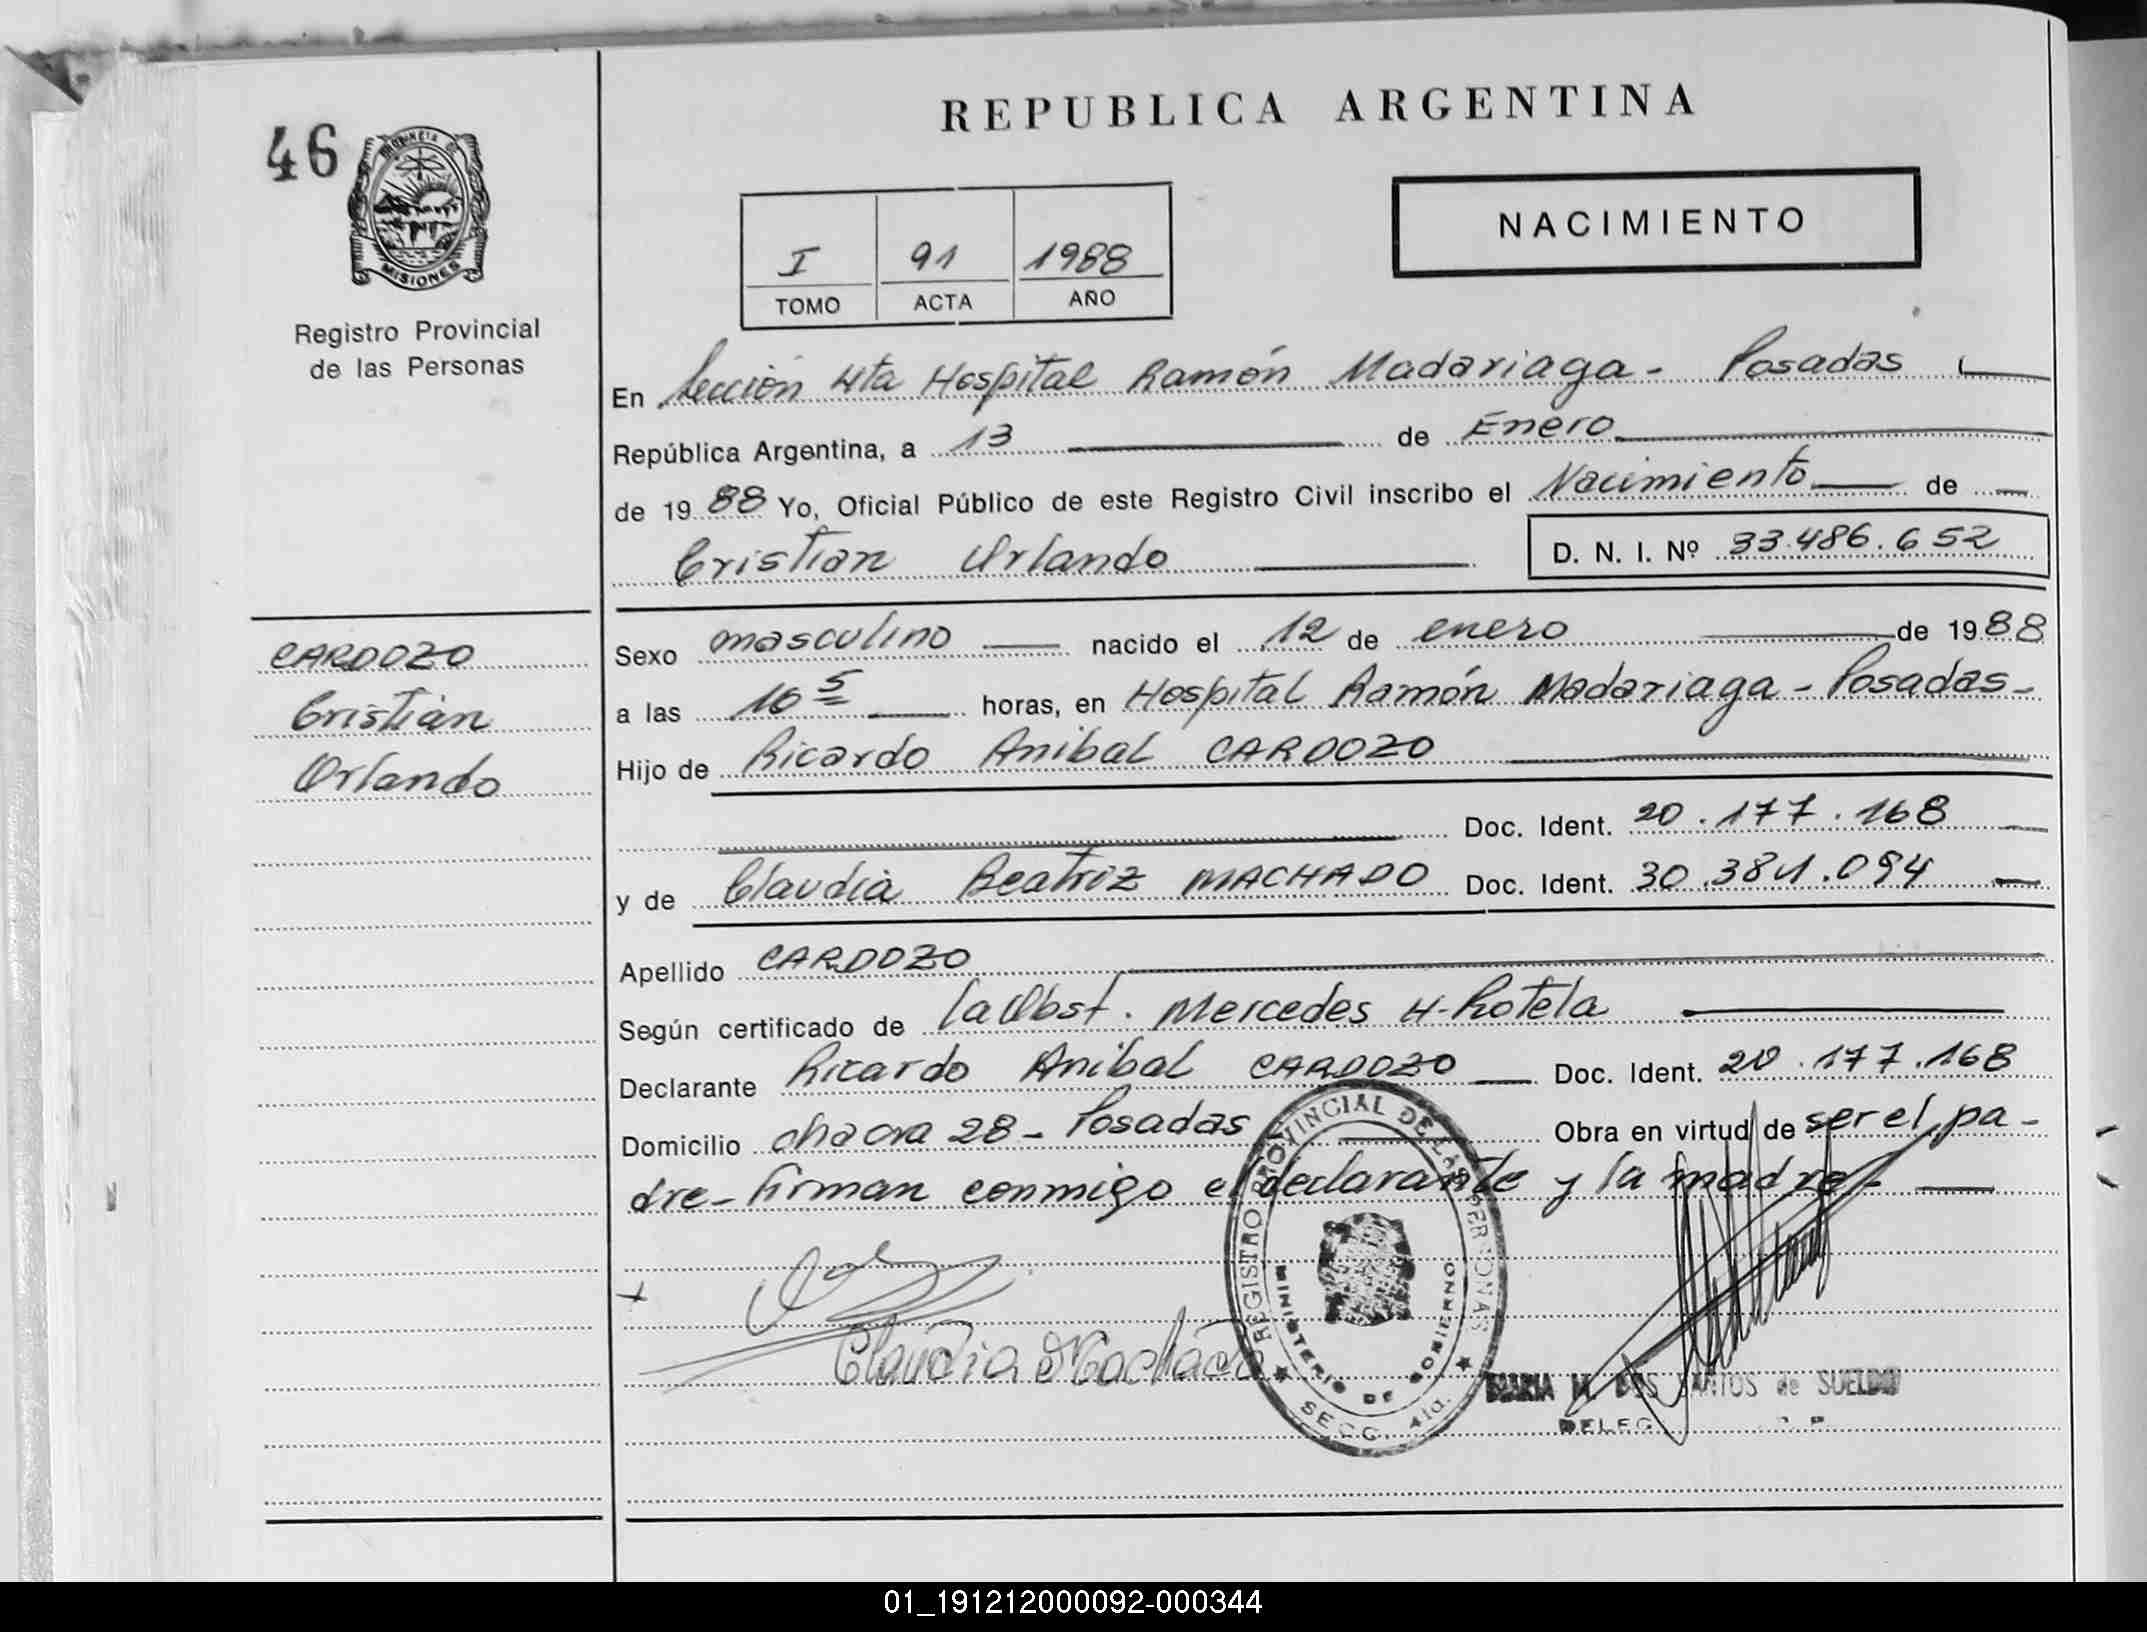 46
PROVINCIA DE
MISIONES
Registro Provincial
de las Personas
REPUBLICA ARGENTINA
NACIMIENTO
I 91 1988
TOMO ACTA AÑO
En Sección 4ta Hospital Ramón Madariaga - Posadas
República Argentina, a 13 de Enero
de 19 88 Yo, Oficial Público de este Registro Civil inscribo el Nacimiento de
Cristian Orlando D. N. I. Nº 33.486.652
CARDOZO
Cristian
Orlando
Sexo masculino nacido el 12 de enero de 1988
a las 10 5 horas, en Hospital Ramón Madariaga - Posadas -
Hijo de Ricardo Anibal CARDOZO
Doc. Ident. 20.177.168
y de Claudia Beatriz MACHADO Doc. Ident. 30.381.094
Apellido CARDOZO
Según certificado de la Obst. Mercedes H. Rotela
Declarante Ricardo Anibal CARDOZO Doc. Ident. 20.177.168
Domicilio chacra 28 - Posadas Obra en virtud de ser el pa-
dre - firman conmigo el declarante y la madre -
Claudia Machado
REGISTRO PROVINCIAL DE LAS PERSONAS
MINISTERIO DE GOBIERNO
SECC. 4ta.
MARIA DOS SANTOS de SUELDO
DELEG.
01_191212000092-000344